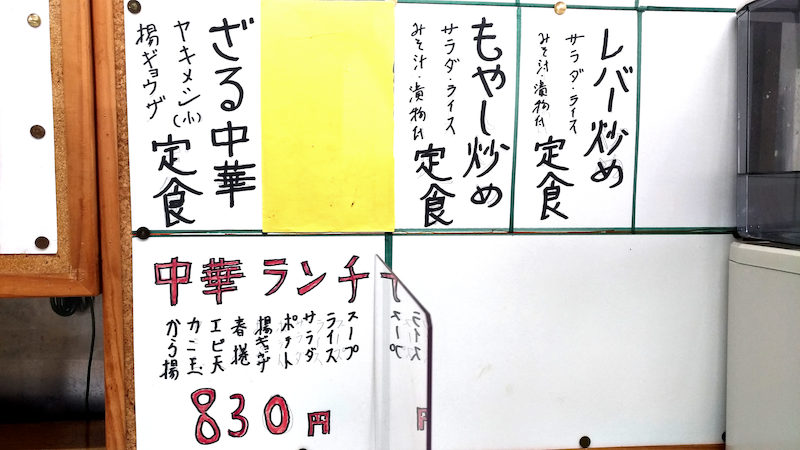 レバー炒め
定食
サラダ・ライス
みそ汁・漬物付
もやし炒め
定食
サラダ・ライス
みそ汁・漬物付
ざる中華
定食
ヤキメシ(小)
揚ギョウザ
中華ランチ
スープ
ライス
サラダ
ポテト
揚ギョーザ
春捲
エビ天
カニ玉
から揚
830円